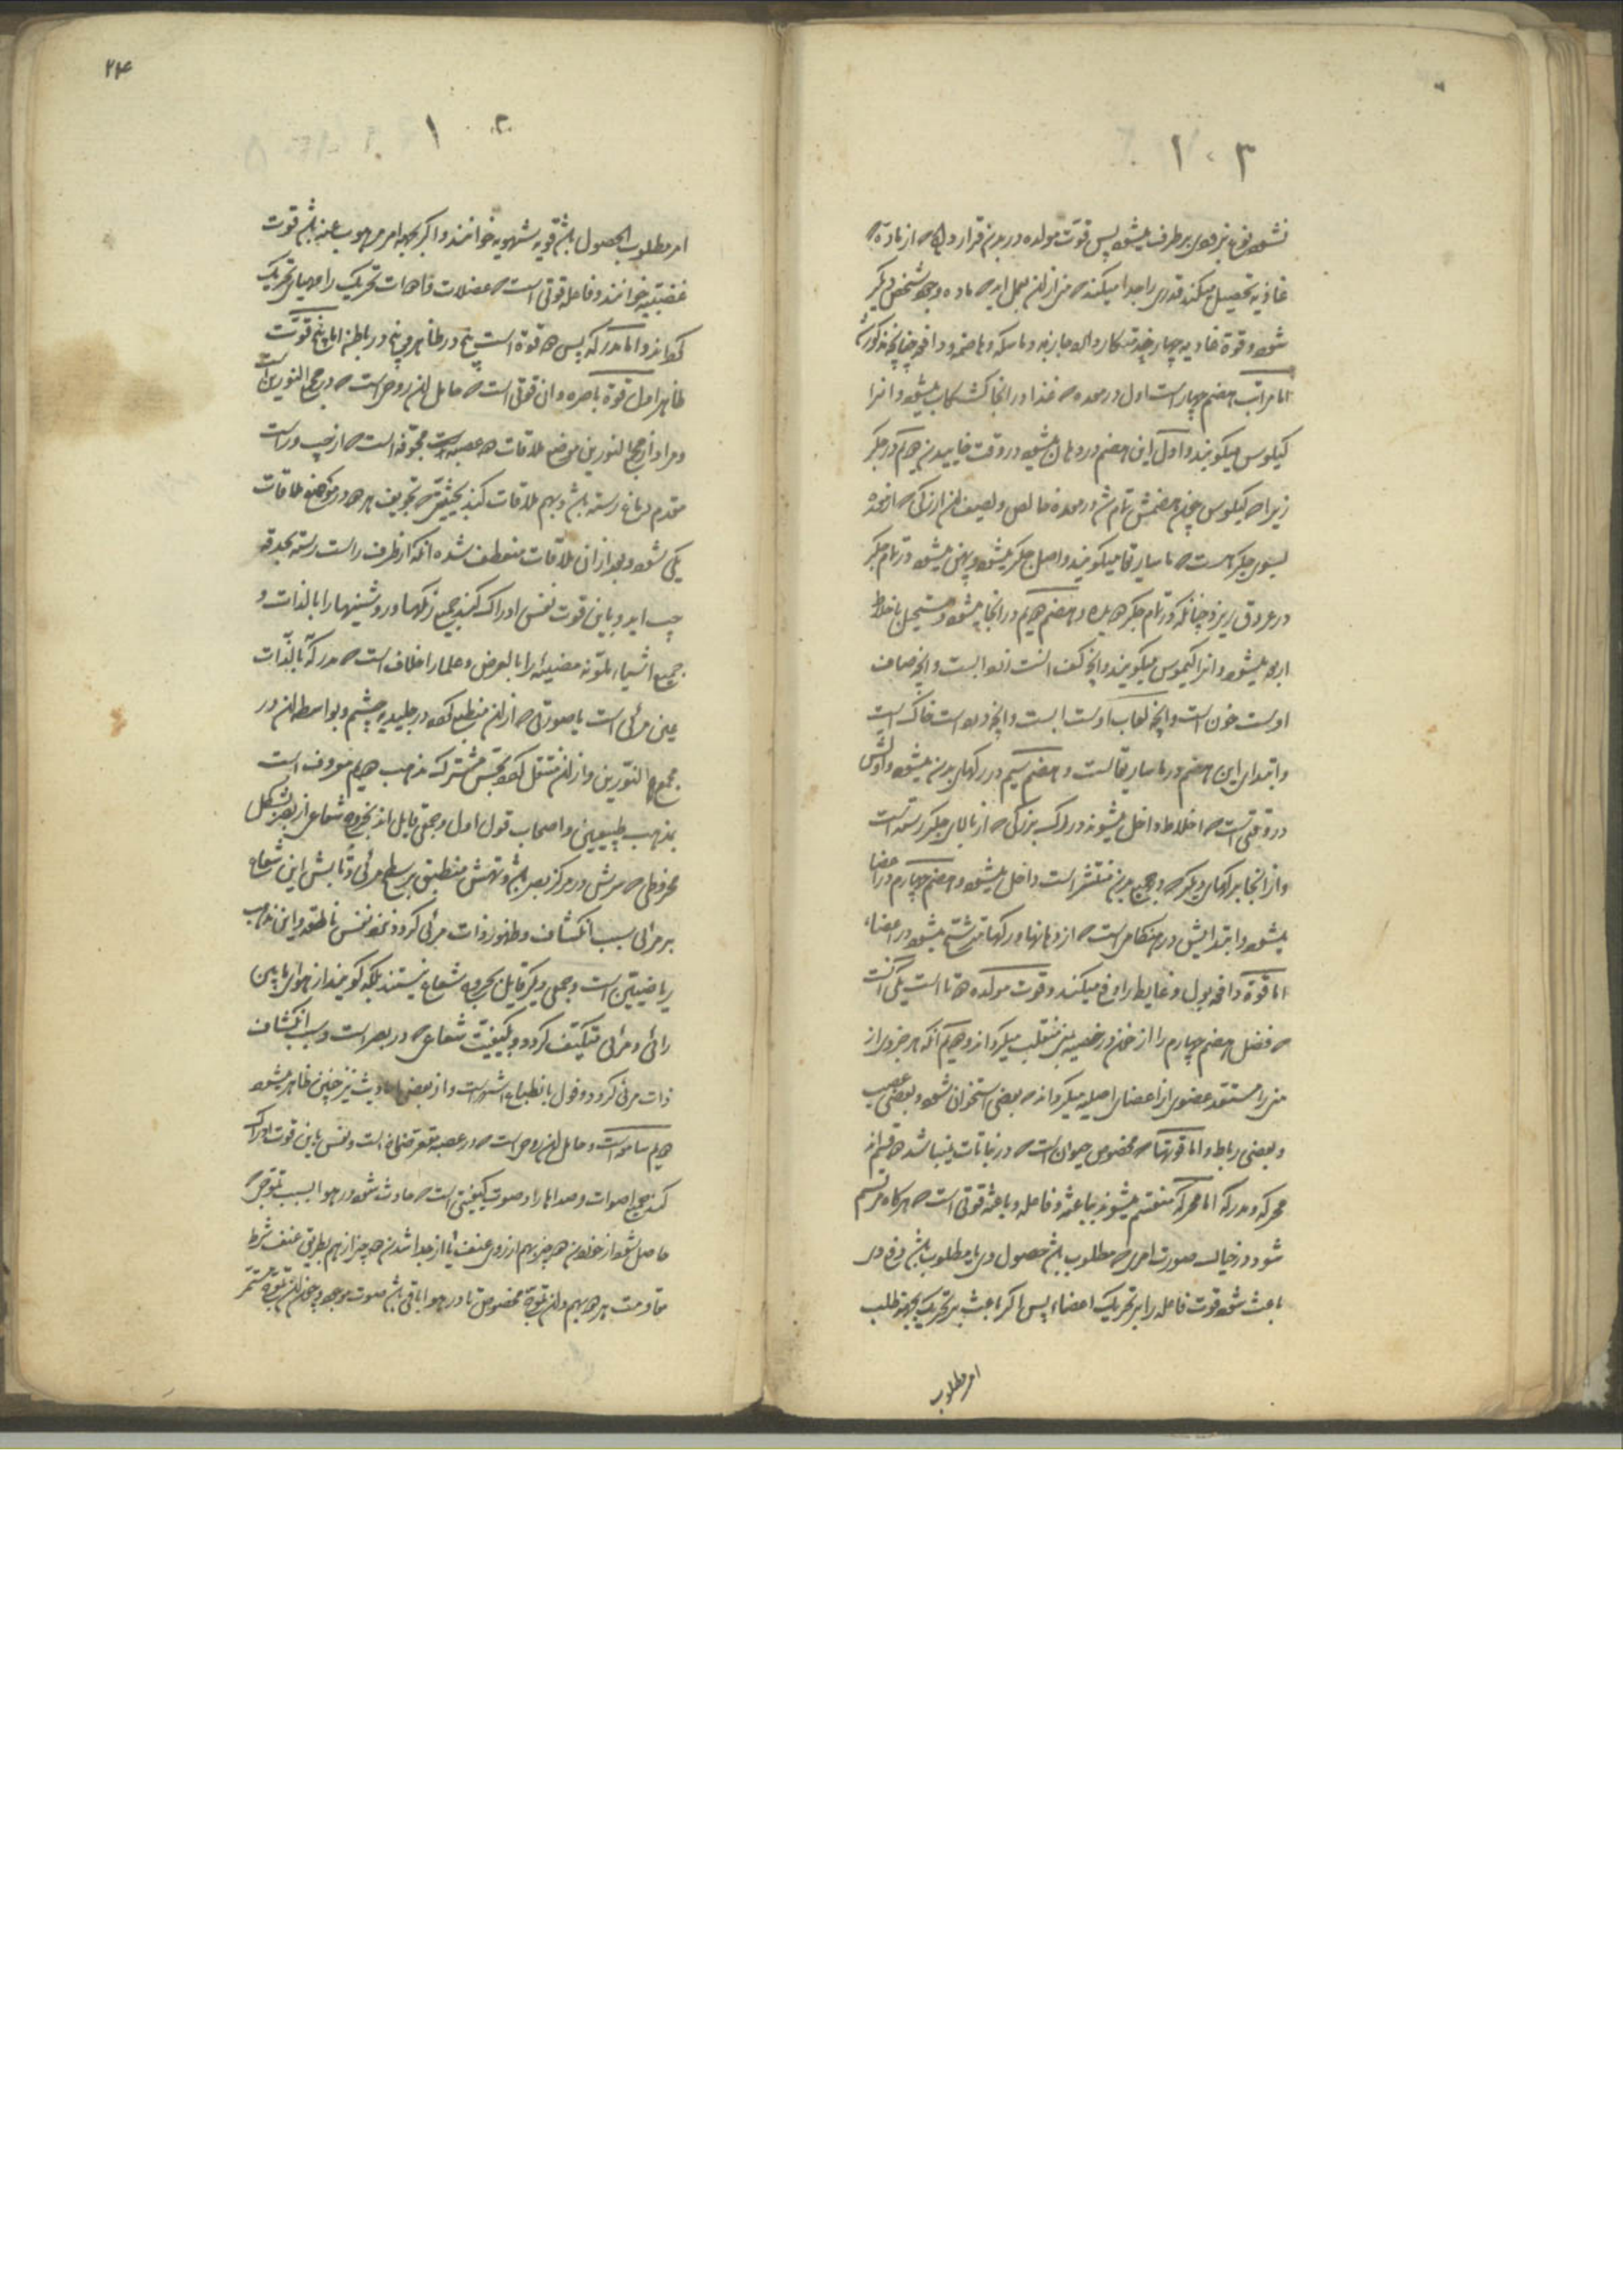 ۳ ۱۰
نشود نوع نیز بر طرف میشود پس قوت مولده در بدن قرار داد که از ماده که
غاذیه تحصیل میکند قدری را جدا میکند که منی از ان بعمل اید که ماده وجود شخص دیگر
شود و قوة غاذیه چهار خدمتکار دارد جاذبه و ماسکه و هاضمه و دافعه چنانچه مذکور شد
اما مراتب هضم چهار است اول در معده که غذا در انجا کشکاب میشود و انرا
کیلوس میکویند و اول این هضم در دهان میشود در وقت خاییدن دویم در جکر
زیرا که کیلوس چون هضمش تمام شد در معده خالص و لطیف ان از رکی که از معده
بسوی جکر هست که ماساریقا میکویند داخل جکر میشود و پهن میشود در تمام جکر
در عروق ریزه چنانکه در تمام جکر هست و هضم دویم در انجا میشود و مستحیل باخلاط
اربعه میشود و انرا کیموس میکویند و انچه کف انست صفرا است و انچه صاف
اوست خون است و انچه لعاب اوست ابست و انچه درد است خاک است
و ابتدای این هضم در ماساریقا است و هضم سیم در رکهای بدن میشود و اولش
در وقتی است که اخلاط داخل میشوند در رک بزرکی که از بالای جکر رسته است
و از انجا برکهای دیگر که در جمیع بدن منتشر است داخل میشود و هضم چهارم در اعضا
میشود و ابتدایش در هنکامی است که از دهانهای رکها مترشح میشود در اعضاء
اما قوة دافعه بول و غایط را دفع میکند و قوت مولده دو تا است یکی آنست
که فضل هضم چهارم را از خون در خصیه بمنی منقلب میکرداند دویم آنکه هر جزوی از
منی را مستعد عضوی از اعضای اصلیه میکرداند که بعضی استخوان شود و بعضی عصب
و بعضی رباط و اما قوتها که مخصوص حیوان است که در نباتات نمیباشد دو قسم اند
محرکه و مدرکه اما محرکه منقسم میشوند بباعثه و فاعله و باعثه قوتی است که هرکاه مرتسم
شود در خیال صورت امری که مطلوب باشد حصول وی یا مطلوب باشد دفع وی
باعث شود قوت فاعله را بر تحریک اعضاء پس اکر باعث بر تحریک بجهة طلب
امر مطلوب
۲۴
۳ ۱۰
امر مطلوب الحصول باشد قوة شهویه خوانند و اکر بجهة امر مهروب عنه باشد قوت
غضبیه خوانند و فاعله قوتی است که عضلات و اعصاب تحریک را مهیای تحریک
کرداند و اما مدرکه پس ده قوة است پنج در ظاهر و پنج در باطن اما پنج قوت
ظاهر اول قوة باصره و ان قوتی است که حامل ان روحی است که در مجمع النورین است
و مراد از مجمع النورین موضع ملاقات دو عصبه مجوفه است که از چپ و راست
مقدم دماغ رسته باشد و بهم ملاقات کنند بحیثیتی که تجویف هر دو در موضع ملاقات
یکی شود و بعد از ان ملاقات منعطف شده آنکه از طرف راست رسته بحدقه
چپ اید و باین قوت نفس ادراک کند جمیع رنکها و روشنیها را بالذات و
جمیع اشیاء ملونه مضیئه را بالعرض و علما را خلاف است که مدرک بالذات
عین مرئی است یا صورتی که از ان منطبع کردد در جلیدیه چشم و بواسطه ان در
مجمع النورین و از ان منتقل کردد بحس مشترک مذهب دویم معروف است
بمذهب طبیعیین و اصحاب قول اول و جمعی قایل اند بخروج شعاعی از بصر بشکل
مخروطی که سرش در مرکز بصر باشد و تهش منطبق بر سطح مرئی و تابش این شعاع
بر مرائی سبب انکشاف و ظهور ذات مرئی کردد نزد نفس ناطقه و این مذهب
ریاضیین است و جمعی دیگر قایل بخروج شعاع نیستند بلکه کویند از هوای مابین
رائی و مرئی متکیف کردد بکیفیت شعاعی که در بصر است و سبب انکشاف
ذات مرئی کردد و قول بانطباع اشهر است و از بعضی احادیث نیز چنین ظاهر میشود
دویم سامعه است و حامل ان روحی است که در عصبه مقعر صماخ است و نفس باین قوت ادراک
کند جمیع اصوات و صداها را و صوت کیفیتی است که حادث شود در هوا بسبب تموجی که
حاصل شود از خوردن دو چیز بهم از روی عنف یا از جدا شدن دو چیز از هم بطریق عنف بشرط
مقاومت هر دو بهم و ان تموج مخصوص تا در هوا باقی باشد صوت موجود و چون ان تموج مستمر